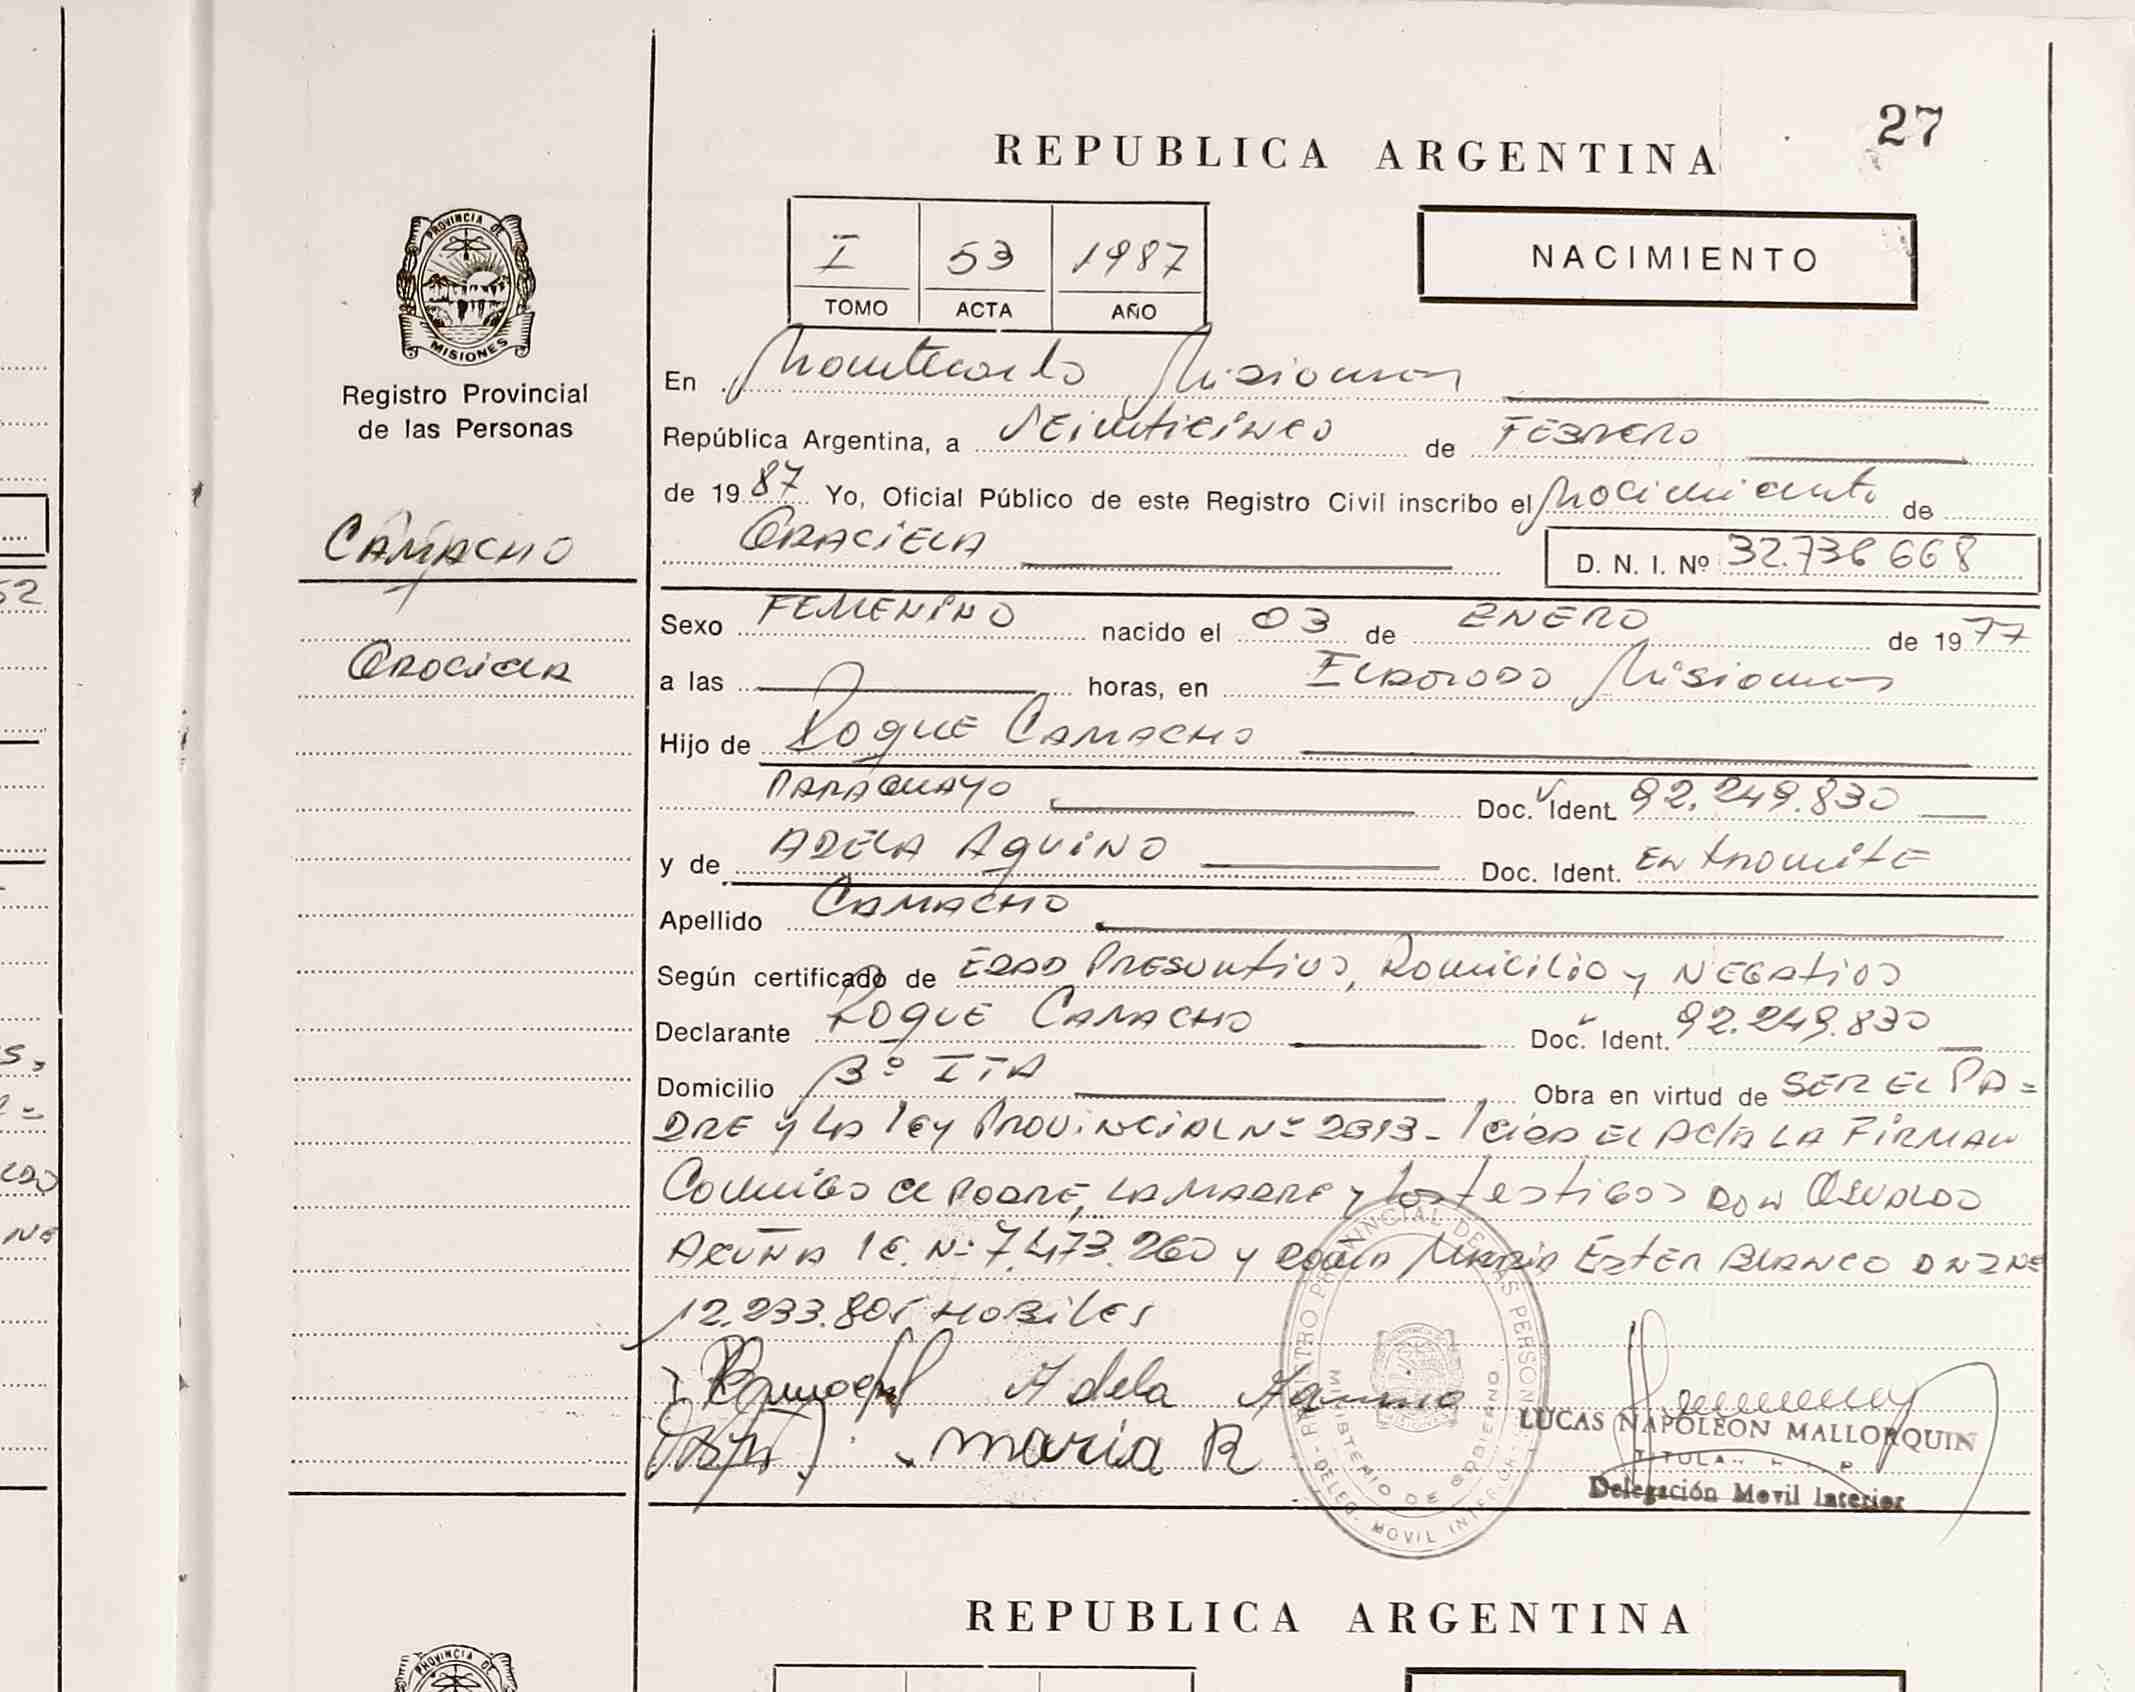 27
REPUBLICA ARGENTINA
I 53 1987
TOMO ACTA AÑO
NACIMIENTO
PROVINCIA DE
MISIONES
Registro Provincial
de las Personas
CAMACHO
GRACIELA
En Montecarlo Misiones
República Argentina, a VEINTICINCO de FEBRERO
de 1987 Yo, Oficial Público de este Registro Civil inscribo el Nacimiento de
GRACIELA D. N. I. Nº 32.736 668
Sexo FEMENINO nacido el 03 de ENERO de 1977
a las horas, en ELDORADO Misiones
Hijo de ROQUE CAMACHO
PARAGUAYO Doc. Ident. 92.249.830
y de ADELA AQUINO Doc. Ident. EN tramite
Apellido CAMACHO
Según certificado de EDAD PRESUNTIVA, DOMICILIO y NEGATIVO
Declarante ROQUE CAMACHO Doc. Ident. 92.249.830
Domicilio Bº ITA Obra en virtud de SER EL PA=
DRE y LA LEY PROVINCIAL Nº 2313- leida EL ACTA LA FIRMAN
Conmigo el PADRE, LA MADRE y los testigos DON OSVALDO
ACUÑA L.E. Nº 7.473.260 y doña MARIA ESTER BLANCO DNI Nº
12.233.805 HABILES
Adela Aquino
maria R
REGISTRO PROVINCIAL DE LAS PERSONAS
MINISTERIO DE GOBIERNO
DELEG. MOVIL INTERIOR
LUCAS NAPOLEON MALLORQUIN
TITULAR
Delegación Movil Interior
REPUBLICA ARGENTINA
PROVINCIA DE